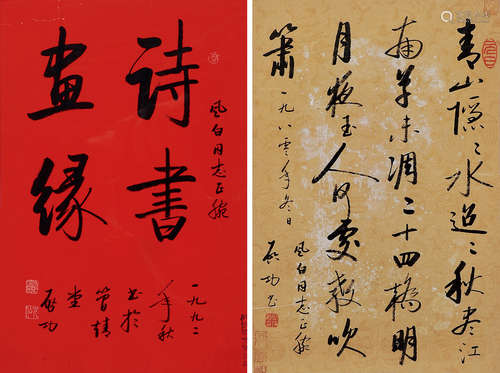 诗书
畫缘
风白同志正腕
一九九二
年秋
书於
堂
启功
青山隐々水迢々秋尽江
南草未凋二十四橋明
月夜玉人何处教吹
箫
一九八零年冬日
风白同志正腕
启功